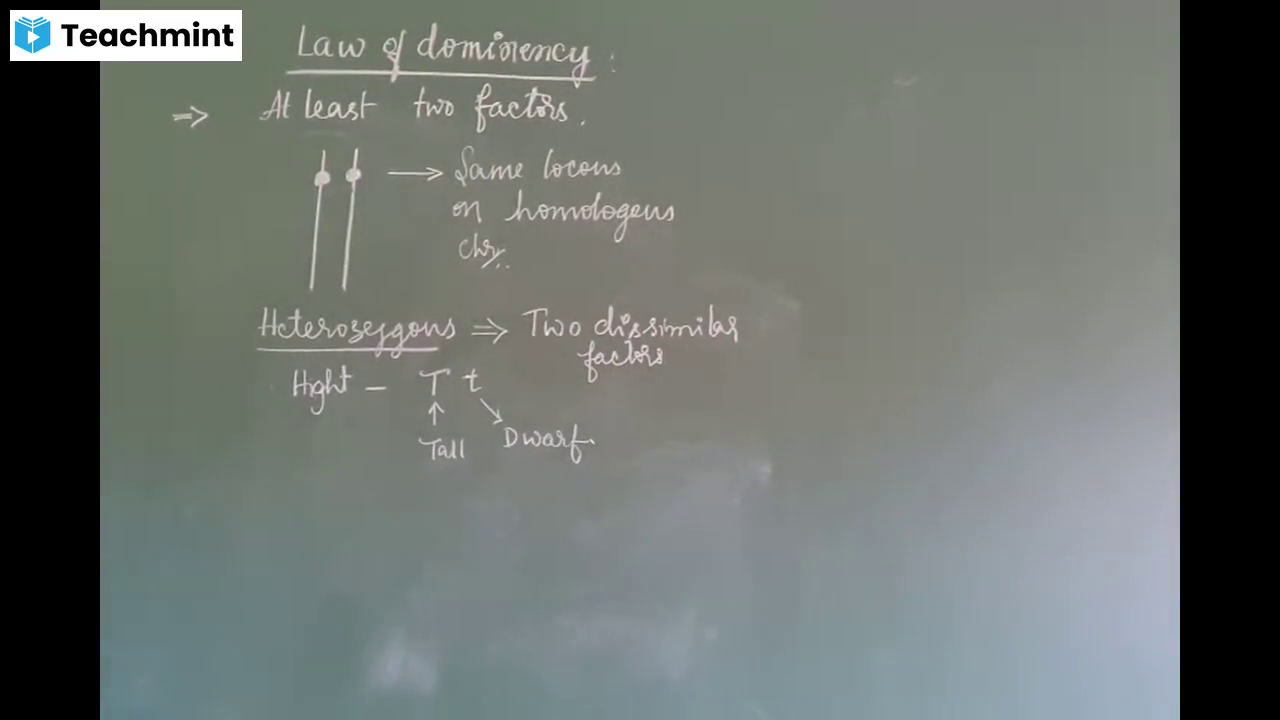 Teachmint
Law of dominency :
=> At least two factors.
→ Same locous
on homologens
chr...
Heterozygous => Two dissimilar
factors
Hight - T t
Tall Dwarf.